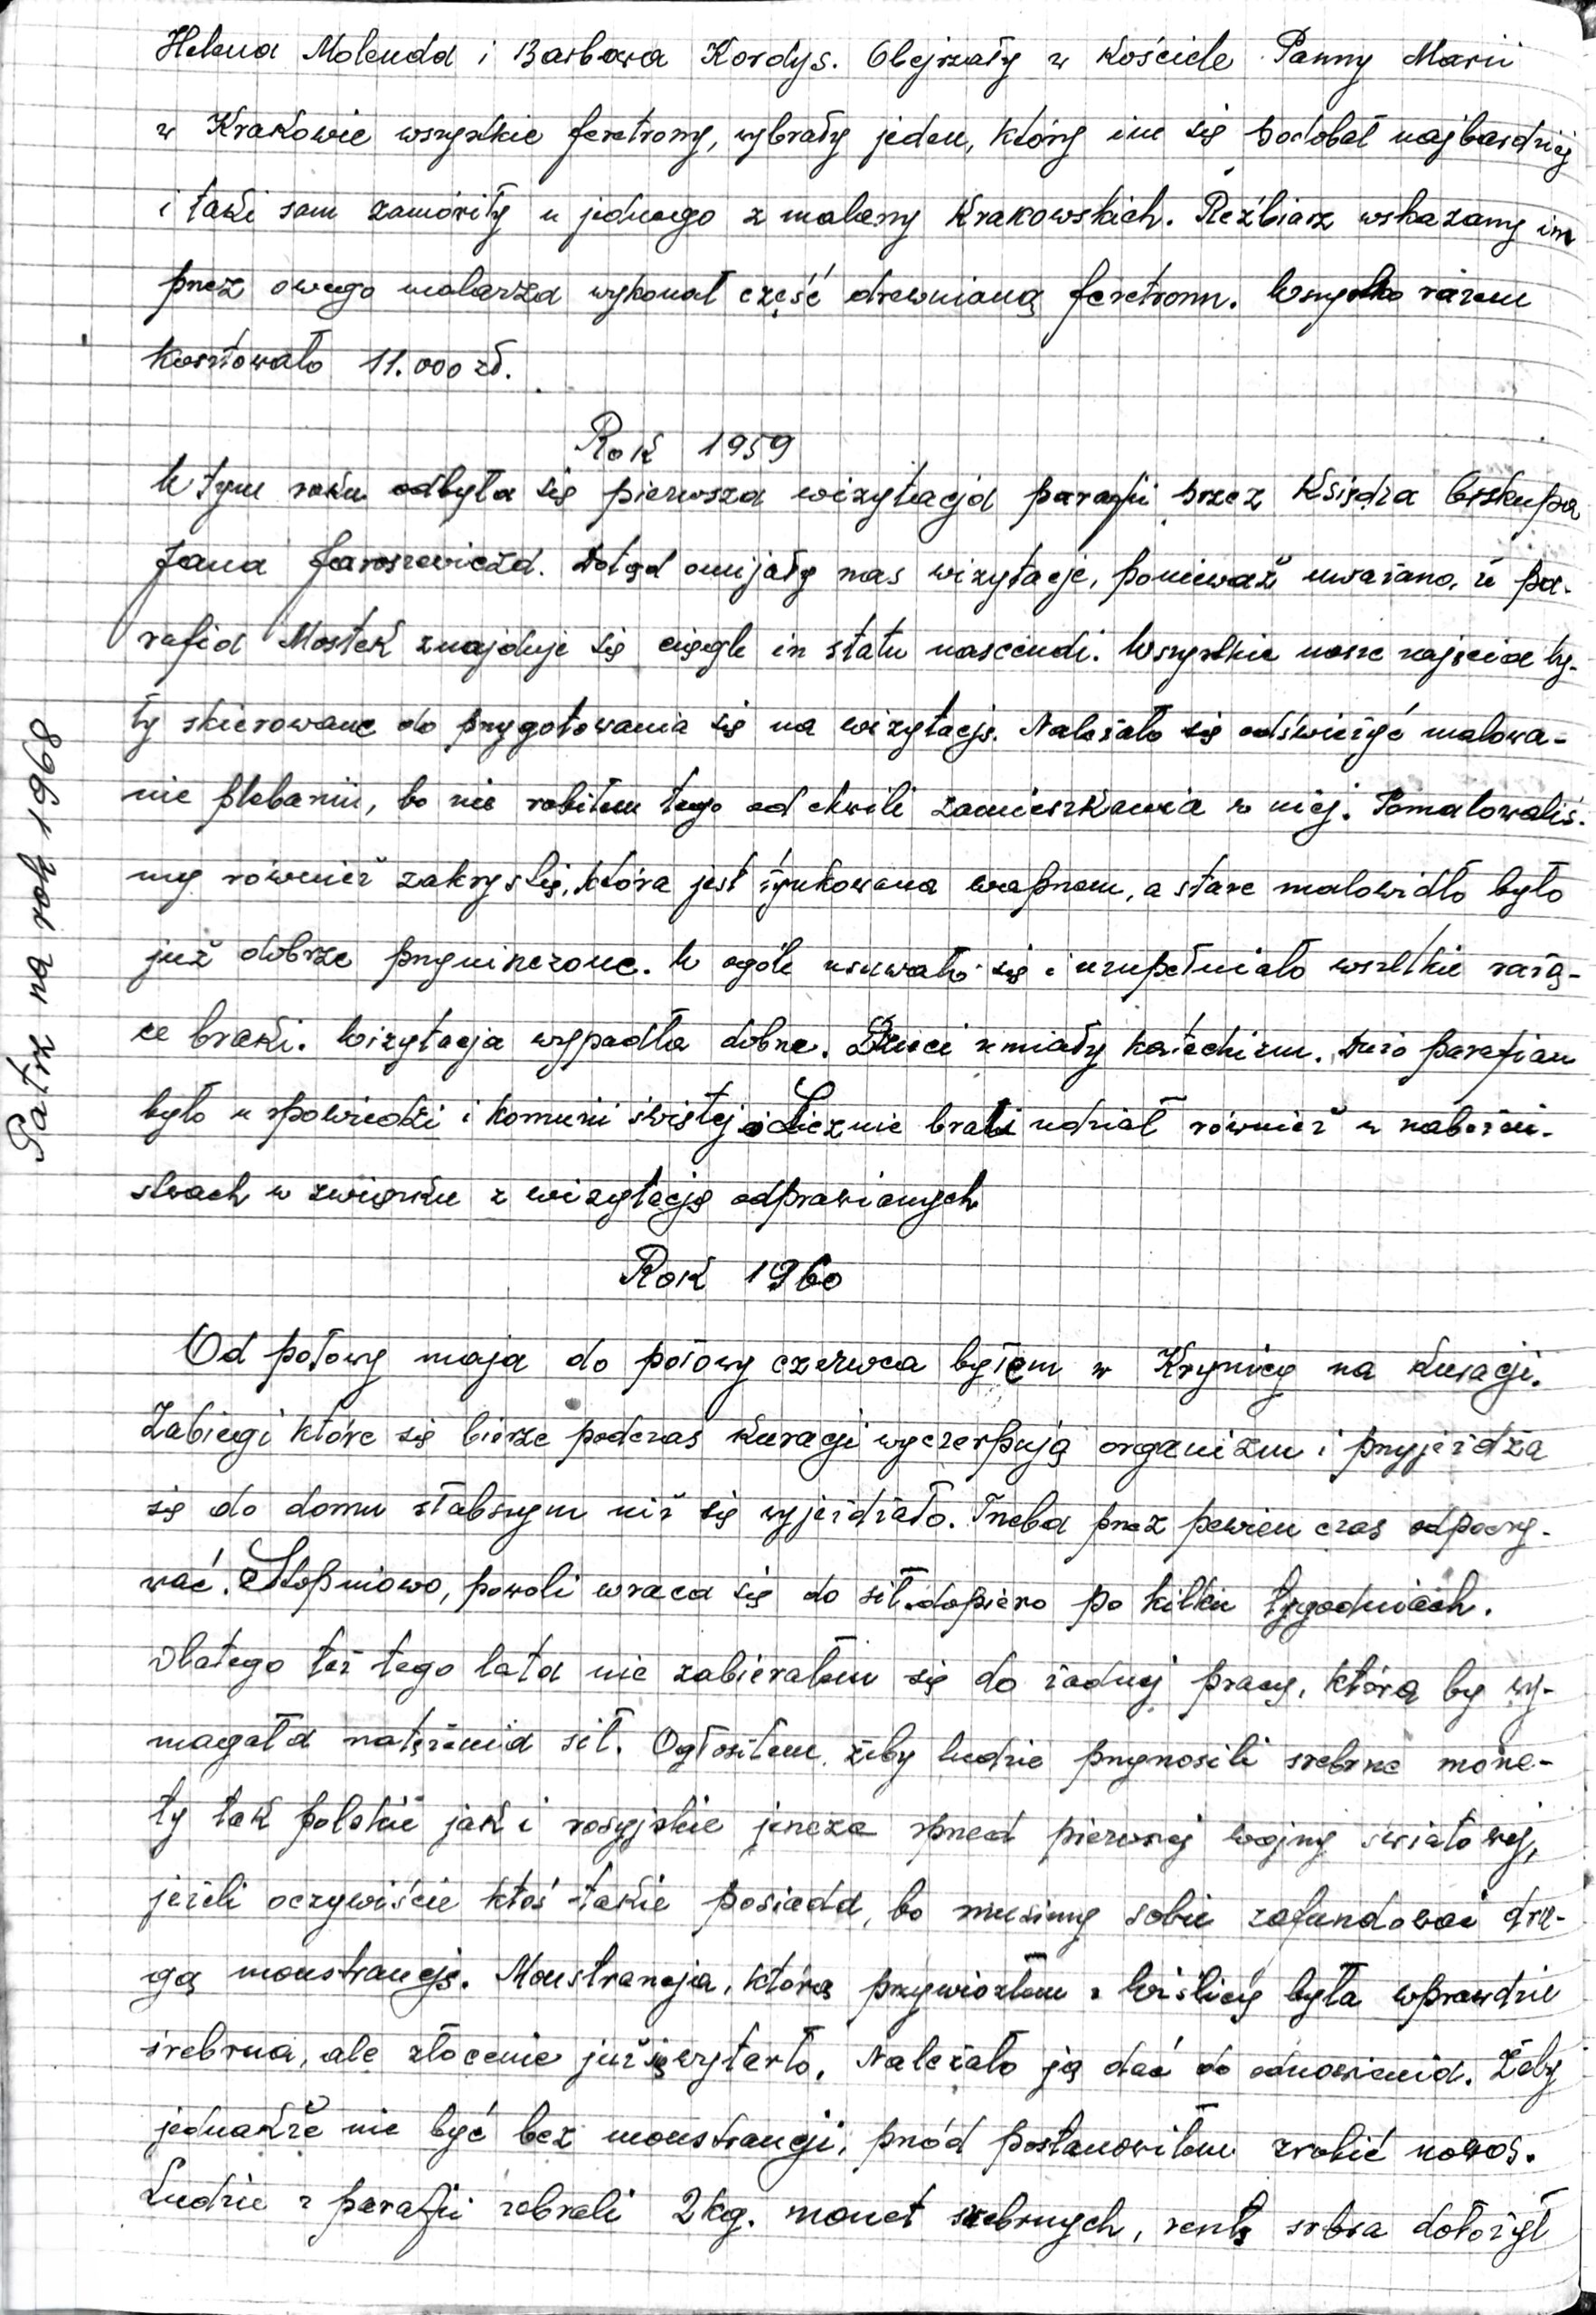 Helena Molenda i Barbara Kordys. Obejrzały w kościele Panny Marii
w Krakowie wszystkie feretrony, wybrały jeden, który im się podobał najbardziej
i taki sam zamówiły u jednego z malarzy krakowskich. Rzeźbiarz wskazany im
przez owego malarza wykonał część drewnianą feretronu. Wszystko razem
kosztowało 11.000 zł.
Rok 1959
W tym roku odbyła się pierwsza wizytacja parafii przez Księdza Biskupa
Jana Jaroszewicza. Dotąd omijały nas wizytacje, ponieważ uważano, że pa-
rafia Mostek znajduje się ciągle in statu nascendi. Wszystkie nasze zajęcia by-
ły skierowane do przygotowania się na wizytację. Należało się odświeżyć malowa-
nie plebanii, bo nie robiłem tego od chwili zamieszkania w niej. Pomalowaliś-
my również zakrystię, która jest tynkowana wapnem, a stare malowidło było
już dobrze przyniszczone. W ogóle usuwało się i uzupełniało wszelkie rażą-
ce braki. Wizytacja wypadła dobrze. Dzieci umiały katechizm. Dużo parafian
było u spowiedzi i komunii świętej i Licznie brali udział również w nabożeń-
stwach w związku z wizytacją odprawianych
Rok 1960
Od połowy maja do połowy czerwca byłem w Krynicy na kuracji.
Zabiegi które się bierze podczas kuracji wyczerpują organizm i przyjeżdża
się do domu słabszym niż się wyjeżdżało. Trzeba przez pewien czas odpoczy-
wać. Stopniowo, powoli wraca się do sił dopiero po kilku tygodniach.
Dlatego też tego lata nie zabierałem się do żadnej pracy, która by wy-
magała natężenia sił. Ogłosiłem, żeby ludzie przynosili srebrne mone-
ty tak polskie jak i rosyjskie jeszcze sprzed pierwszej wojny światowej,
jeżeli oczywiście ktoś takie posiada, bo musimy sobie zafundować dru-
gą monstrancję. Monstrancja, którą przywiozłem z Wiślicy była wprawdzie
srebrna, ale złocenie już się wytarło. Należało ją dać do odnowienia. Żeby
jednakże nie być bez monstrancji, przód postanowiłem zrobić nową.
Ludzie z parafii zebrali 2 kg. monet srebrnych, resztę srebra dołożył
Patrz na rok 1968